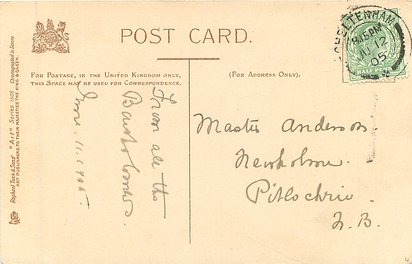 POST CARD.
FOR POSTAGE, IN THE UNITED KINGDOM ONLY,
THIS SPACE MAY BE USED FOR CORRESPONDENCE.
(FOR ADDRESS ONLY).
Raphael Tuck & Sons' "Art" Series 1609
ART PUBLISHERS TO THEIR MAJESTIES THE KING & QUEEN.
CHELTENHAM
9.15PM
12
05
From all the
June. 11. 1905.
Master Anderson
Newholme
Pitlochrie
N.B.